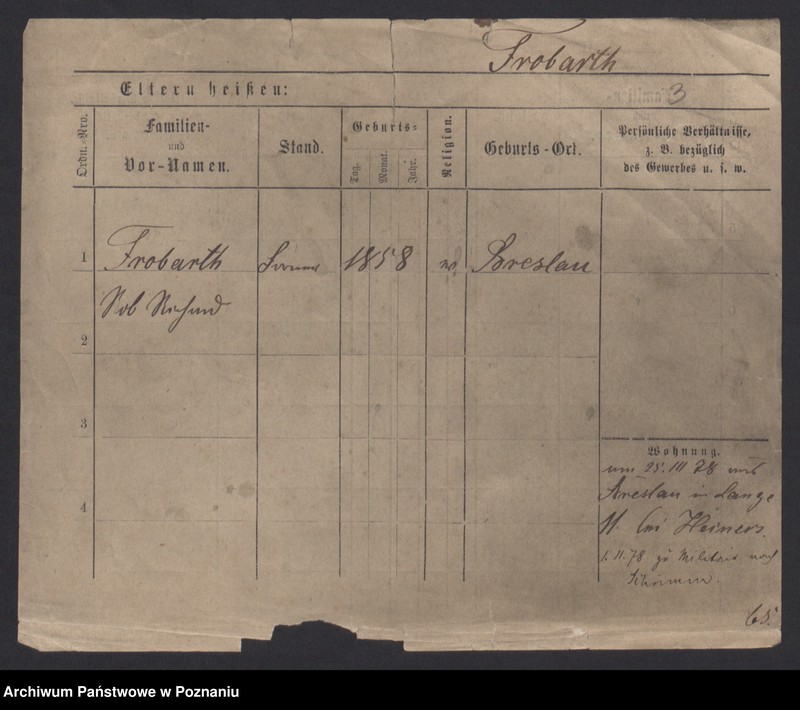 Frobarth
3
Eltern heißen:
Ordn.-Nro.
Familien-
und
Vor-Namen.
Stand.
Geburts-
Tag.
Monat.
Jahr.
Religion.
Geburts-Ort.
Persönliche Verhältnisse,
z. B. bezüglich
des Gewerbes u. s. w.
1 Frobarth 1858 Breslau
Rob Richard
2
3
4
Wohnung.
25. III 78
Breslau in Lange
11. bei Heiners.
1. 11. 78 zu Militair nach
65.
Archiwum Państwowe w Poznaniu